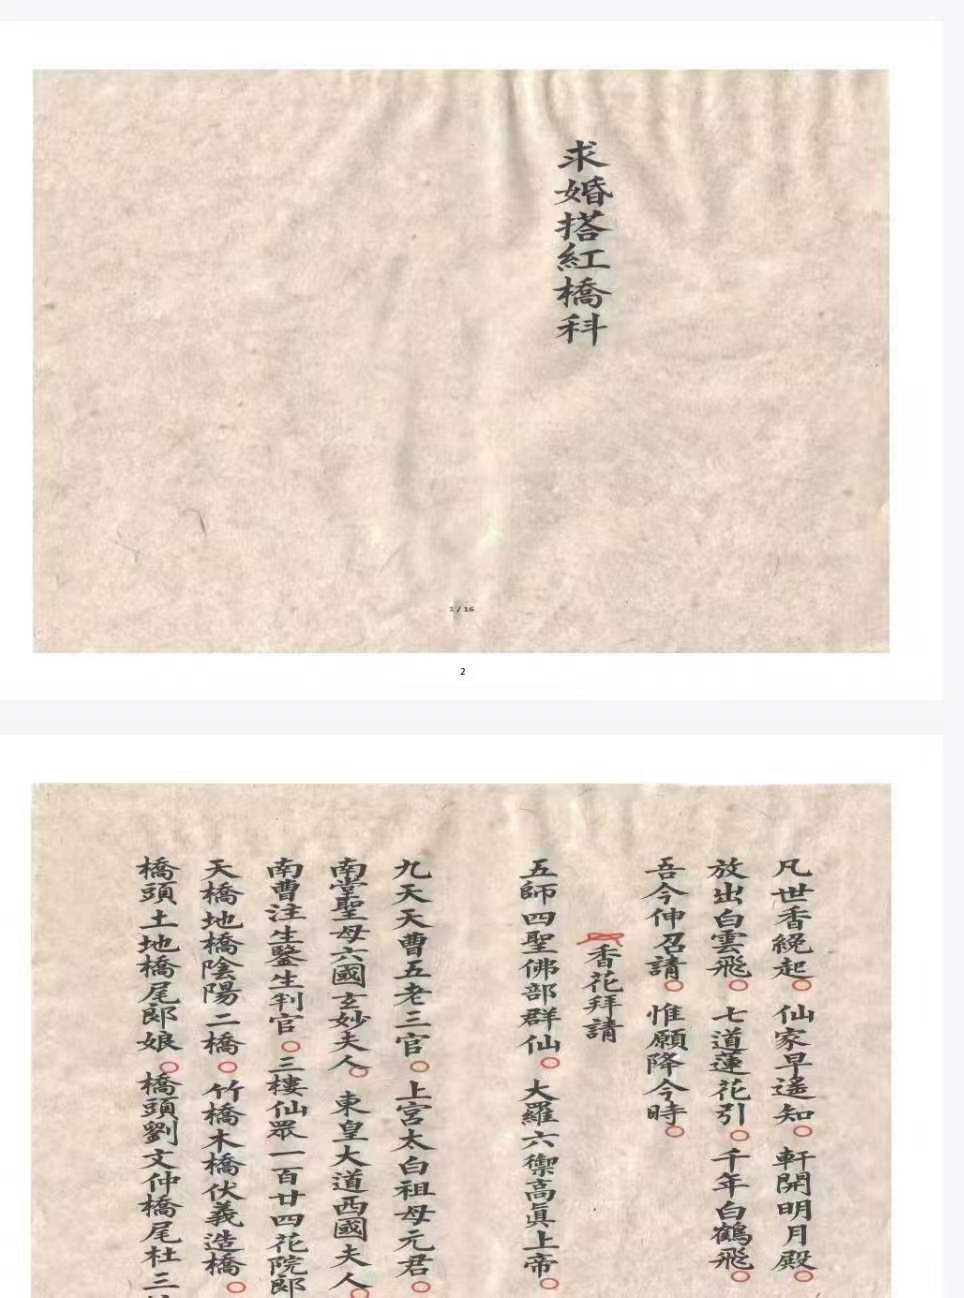 求婚搭紅橋科
2 / 16
2
凡世香纔起○仙家早遙知○軒開明月殿○
放出白雲飛○七道蓮花引○千年白鶴飛○
吾今伸召請○惟願降今時○
香花拜請
五師四聖佛部群仙○大羅六禦高眞上帝○
九天天曹五老三官○上宮太白祖母元君○
南堂聖母六國玄妙夫人○東皇大道西國夫人○
南曹注生鑒生判官○三樓仙眾一百廿四花院郎
天橋地橋陰陽二橋○竹橋木橋伏義造橋○
橋頭土地橋尾郎娘○橋頭劉文仲橋尾杜三